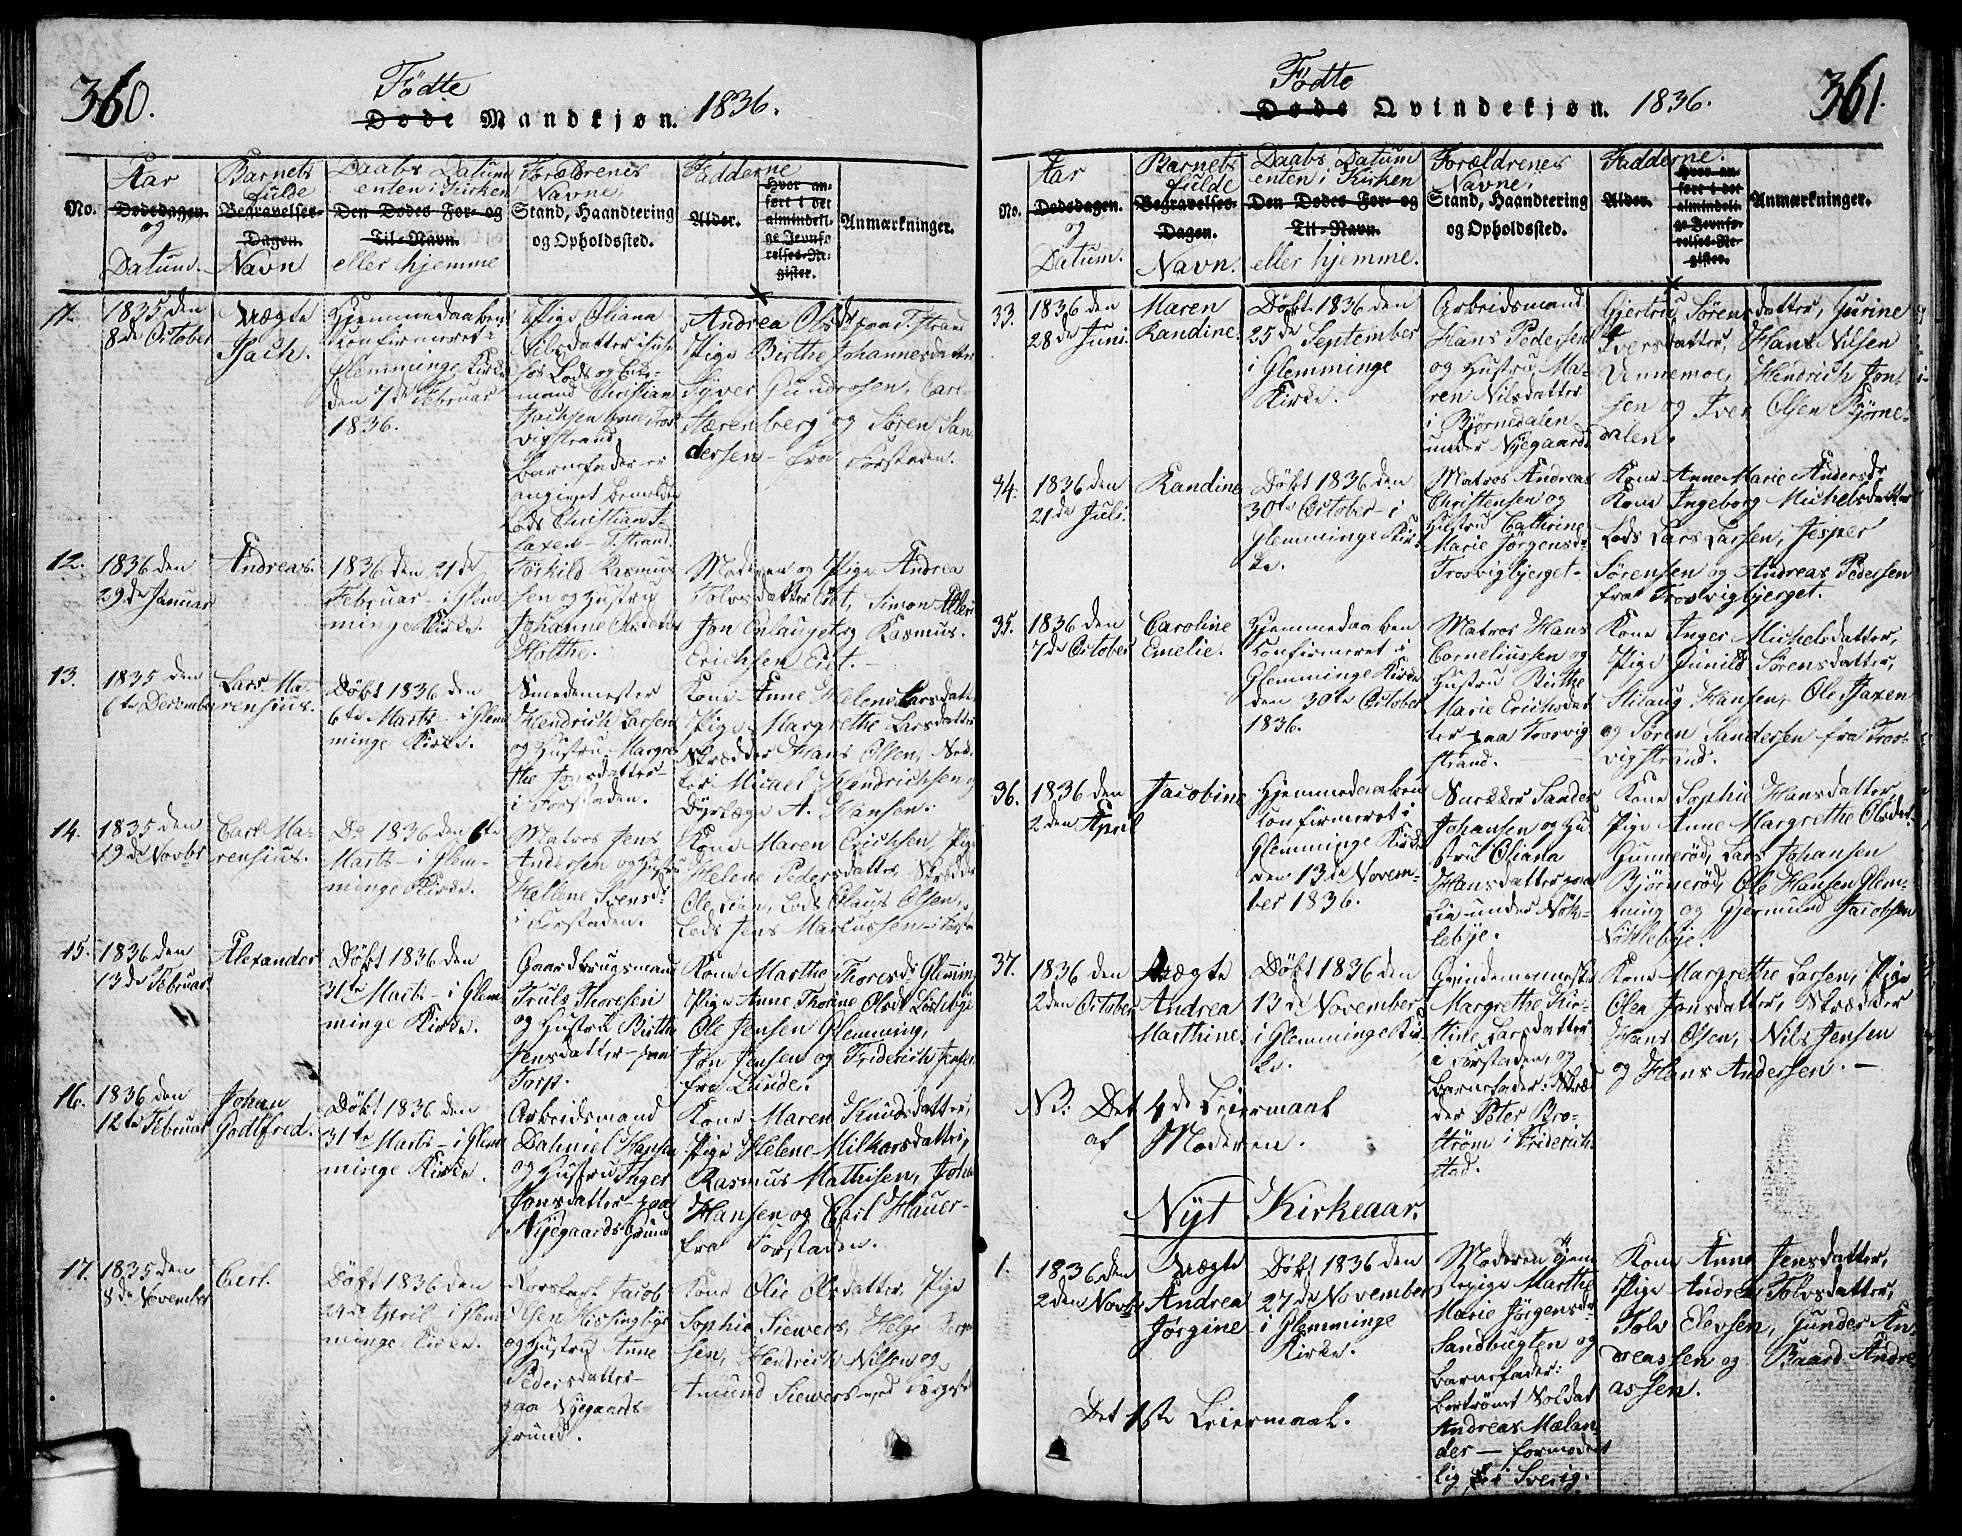 360.
Fødte
Døde Mandkjøn. 1836.
No.
Aar
Dødsdagen.
og
Datum.
Barnets
fulde
Begravelses-
Dagen.
Navn
Daabs Datum
enten i Kirken
Den Dødes For- og
Til-Navn.
eller hjemme
Forældrenes
Navne
Stand, Haandtering
og Opholdssted.
Fadderne
Alder.
Hvor an-
ført i det
almindeli-
ge Jevnfø-
relses-Re-
gister.
Anmærkninger.
11.
1835 den
8de October
Uægte
Isach.
Hjemmedaaben
confirmeret i
Glemminge Kirke
den 7de Februar
1836.
Pige Oliana
Nilsdatter
Lods og
mand Christian
Isachsen
vigstrand
Barnefader er
angivet bemeldte
Lods Christian I-
saxen T.strand.
Andrea Olsd. paa T.strand
Pige Birthe Johannesdatter
Syver Gundrosen, Carl
Særenberg og Søren San-
dersen fra Forstaden.
12.
1836 den
29de Januar
Andreas.
1836 den 21de
Februar i Glem-
minge Kirke.
Torkild Rasmus-
sen og Hustru
Johanne Olsdatter
Holthe.
Moderen og Pige Andrea
Tolvsdatter Eet, Simon
Jon Enlauget og Rasmus
Erichsen Eet.
13.
1835 den
6te December
Lars Ma-
rensius.
Døbt 1836 den
6te Marts i Glem-
minge Kirke.
Smedemester
Hendrich Larsen
og Hustru Margre-
the Jonsdatter
i Forstaden.
Kone Anne Helene Larsdatter
Pige Margrethe Larsdatter
Skrædder Hans Olsen,
Micael Hendrichsen og
Dyrlæge A. Hansen.
14.
1835 den
19de Novbr
Carl Ma-
rensius.
Do 1836 den 6te
Marts i Glem-
minge Kirke.
Matros Jens
Andersen og Hustru
Hellene Svensd.
i Forstaden.
Kone Maren Erichsen, Pige
Helene Pedersdatter, Skrædder
Ole Lian, Lods Olaus Olsen,
Lods Jens Marcussen i Forst.
15.
1836 den
13de Februar
Alexander
Døbt 1836 den
31te Marts i Glem-
minge Kirke.
Gaardbrugsmand
Truls Thoresen
og Hustru Birthe
Jensdatter paa
Torp.
Kone Marthe Thoresd. Glemming
Pige Anne Thorine Olsdt
Ole Jensen Glemming,
Jøn Jensen og Friderich Jensen
fra Lunde.
16.
1836 den
12te Februar
Johan
Godtfred.
Døbt 1836 den
31te Marts i Glem-
minge Kirke.
Arbeidsmand
Dahniel Hansen
og Hustru Inger
Jonsdatter paa
Nyegaards Grund
Kone Maren Knudsdatter,
Pige Helene Milkorsdatter,
Rasmus Mathisen, Johan
Hansen og Carl Hauer
fra Forstaden.
17.
1835 den
8de November
Carl.
Døbt 1836 den
April i Glem-
minge Kirke.
Jacob
Olsen
og Hustru Anne
Pedersdatter
paa Nyegaards-
grund.
Kone Olie Olsdatter, Pige
Sophie Siewers, Helge
sen, Hendrich Nilsen og
Amund Siewers
361.
Fødte
Døde Qvindekjøn. 1836.
No.
Aar
Dødsdagen.
og
Datum.
Barnets
fulde
Begravelses-
Dagen.
Navn.
Daabs Datum
enten i Kirken
Den Dødes For- og
Til-Navn.
eller hjemme.
Forældrenes
Navne,
Stand, Haandtering
og Opholdssted.
Fadderne.
Alder.
Hvor an-
ført i det
almindeli-
ge Jevnfø-
relses-Re-
gister.
Anmærkninger.
33.
1836 den
28de Juni
Maren
Randine.
Døbt 1836 den
25de September
i Glemminge
Kirke.
Arbeidsmand
Hans Pedersen
og Hustru Ma-
ren Nilsdatter
i Bjørnedalen
under Nyegaard.
Gjertrud Sørensdatter, Gurine
Iversdatter, Hans Nilsen
Annemoe, Hendrich Jon-
sen og Iver Olsen Bjørne-
dalen.
34.
1836 den
21de Juli.
Randine
Døbt 1836 den
30te October i
Glemminge Kir-
ke.
Matros Andreas
Christensen og
Hustru Cathrine
Marie Jørgensdr
Trosvigbjerget
Kone Anne Marie Andersdr
Kone Ingeborg Michelsdatter
Lods Lars Larsen, Jesper
Sørensen og Andreas Pedersen
fra Trosvigbjerget.
35.
1836 den
7de October
Caroline
Emelie.
Hjemmedaaben
confirmeret i
Glemminge Kirke
den 30te October
1836.
Matros Hans
Corneliussen og
Hustru Birthe
Marie Erichsdat-
ter paa Trosvig
strand.
Kone Inger Michelsdatter,
Pige Gunild Sørensdatter,
Hilaug Hansen, Ole Isaxen
og Søren Sandersen fra Tros-
vigstrand.
36.
1836 den
2den April
Jacobine
Hjemmedaaben
confirmeret i
Glemminge Kirke
den 13de Novem-
ber 1836.
Snekker Sander
Johansen og Hu-
stru Oliana
Hansdatter paa
Lia under Nøk-
lebye.
Kone Sophie Hansdatter,
Pige Anne Margrethe Olsdatter
Gunnerød, Lars Johansen
Bjørnerød, Ole Hansen Glem-
ming og Gjermund Jacobsen
Nøklebye.
37.
1836 den
2den October
Uægte
Andrea
Marthine.
Døbt 1836 den
13de November
i Glemminge Kir-
ke.
Margrethe Kir-
stine Larsdatter
i Forstaden, og
Barnefader: Skræd-
der Peter Bro-
strøm i Friderich-
stad.
Kone Margrethe Larsen, Pige
Olea Jonsdatter, Skrædder
Hans Olsen, Nils Jensen
og Hans Andersen.
NB: Det 4de Leiermaal
af Moderen.
Nyt Kirkeaar.
1.
1836 den
2den Novbr
Uægte
Andrea
Jørgine
Døbt 1836 den
27de November
i Glemminge
Kirke.
Moderen Tjene-
stepige Marthe
Marie Jørgensdr
Sandbugten og
Barnefader:
bortrømt Soldat
Andreas Mælan-
der — formodent-
lig i Sverig.
Kone Anne Jensdatter,
Pige Andrea Tolvsdatter,
Tolv Elevsen, Gunder An-
dreassen og Baard Andre-
assen.
Det 1ste Leiermaal.